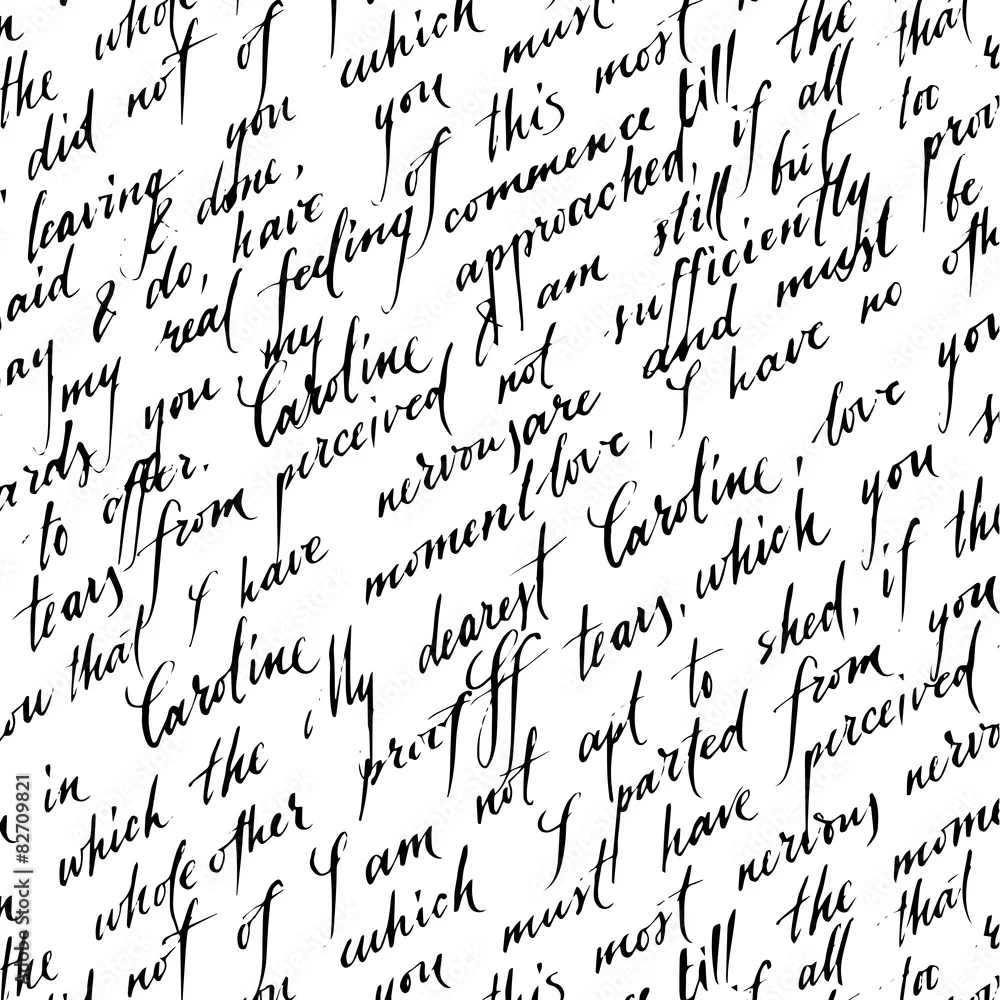 the whole of which must the that
did not you you this most till if all too
leaving & done, of commence but prov
said & do, have approached, still be
ay my real feeling & am sufficiently oth
ards you, my Caroline not and must no you
to offer. perceived nervous are I have love
tears from moment love, Caroline, you
ou that I have dearest which if the
Caroline, My tears, shed, you
in which the proof off not apt to from perceived
whole other I am I parted have nervous nervo
the not of which must most the mome
did you you this till if all that too
Adobe Stock | #82709821